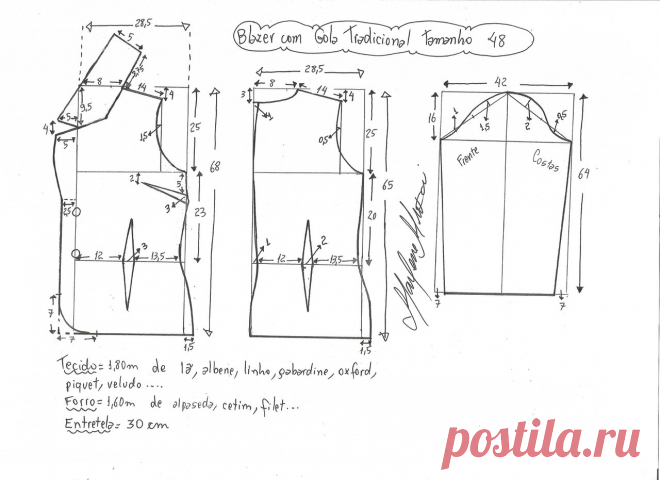 Blazer com Gola Tradicional tamanho 48
28,5
5
8
14
4
9,5
5
4
5
1,5
25
68
2
5
3
23
2,5
3
12
13,5
7
7
1,5
28,5
8
14
3
4
1
0,5
25
65
20
1
2
12
13,5
1,5
42
16
1
1,5
2
0,5
Frente
Costas
64
7
7
Tecido= 1,80m de lã, albene, linho, gabardine, oxford,
piquet, veludo ....
Forro= 1,60m de alpaseda, cetim, filet...
Entretela= 30 cm
postila.ru